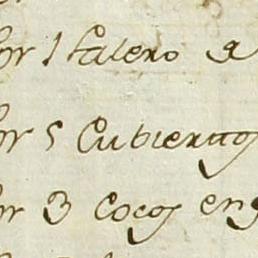 Por 1 Salero
Por 5 Cubiertos
Por 3 Cocos